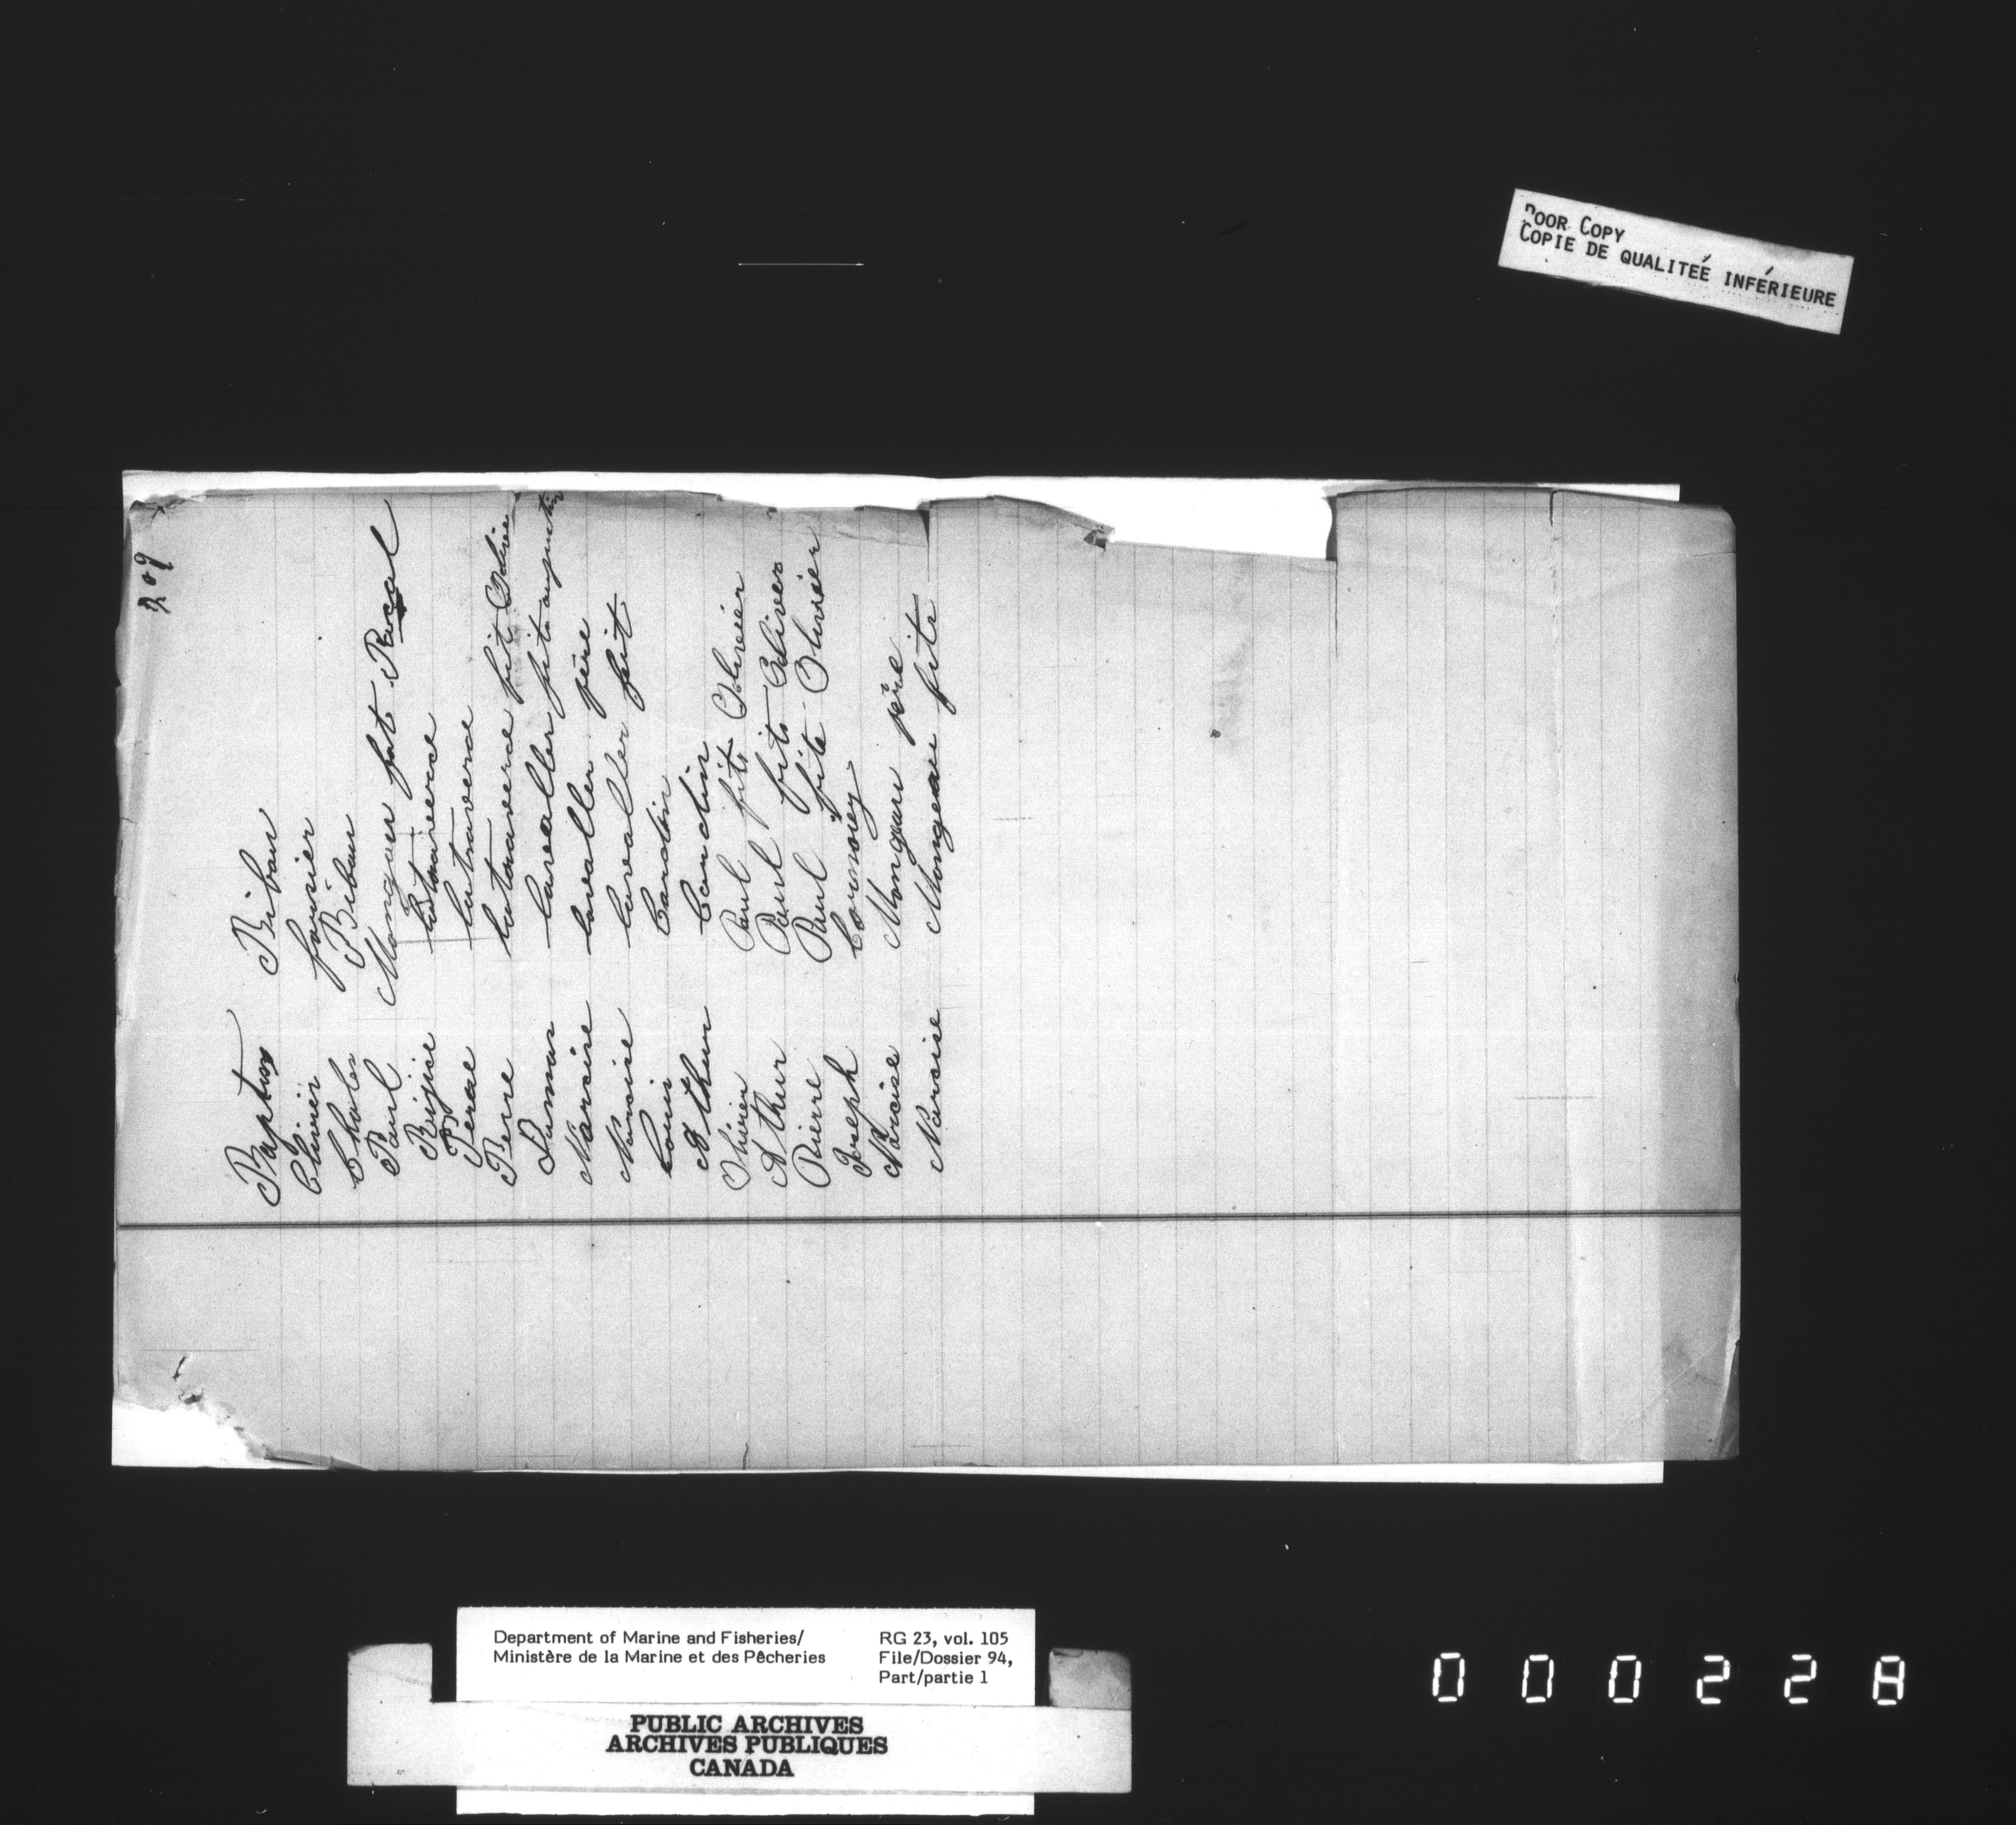 POOR COPY
COPIE DE QUALITEÉ INFÉRIEURE
209
Baptiss Bibau
Olivier fournier
Charles Bibau
Paul Mongeu Pascal
lutraverse
Pierre lutraverse
Pierre lutraverse fils Oliver
lavaller fils
Narcise lavaller père
Narcise lavaller fils
Louis Cardin
Athur Cardin
Olivier Paul fils Olivier
Athur Paul fils Oliver
Pierre Paul fils Olivier
Joseph Cournoiey
Narcise Mongeau père
Narcise Mongeau fils
Department of Marine and Fisheries/
Ministère de la Marine et des Pêcheries
RG 23, vol. 105
File/Dossier 94,
Part/partie 1
PUBLIC ARCHIVES
ARCHIVES PUBLIQUES
CANADA
000228